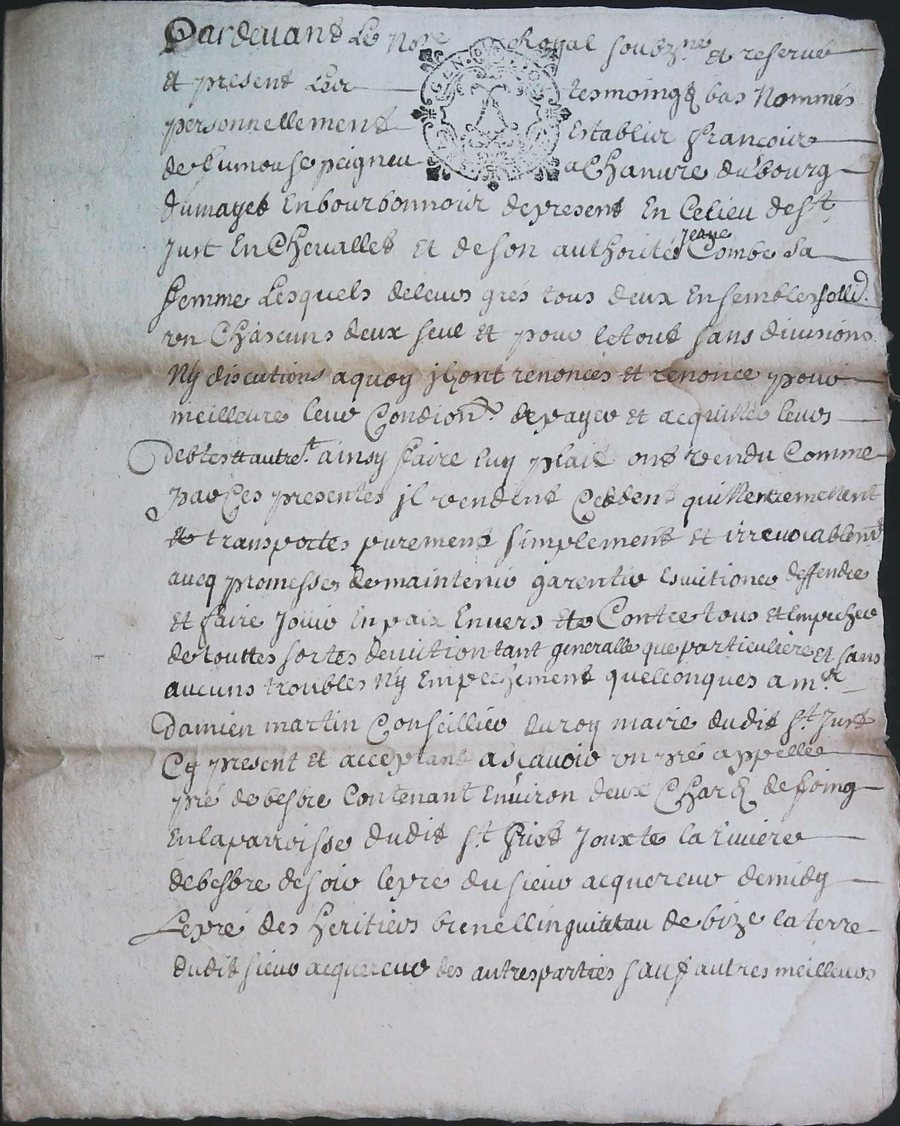 Pardevant Le No.re Royal soubz.ne et reservé
et present Les tesmoingz bas Nommés
personnellement Establis francois
de Lumouse peigneu a Chanvre du bourg
dumayet En bourbonnois depresent En Celieu de St
Just En Chevallet et de son authorité Jeane Combe Sa
femme Lesquels deleurs grés tous deux Ensembles sollid.
un Chascuns deux seul et pour letout sans divisions
Ny discutions aquoy jlz ont renoncés et renonce pour
meilleure leur Condion. depayer et acquitter leurs
debtes et autre.t ainsy faire luy plait ont vendu Comme
par Ces presentes jl vendent Ceddent quittent remettent
et transportes purement simplement et irrevocablem.t
avecq promesses de maintenir garentir Esvitioner deffendre
et faire Jouir En paix Envers et Contre tous et Empecher
de touttes sortes deviction tant generalle que particuliere et sans
aucuns troubles Ny Empechement quelconques a m.r
Damien martin Conseillier duroy maire dudit St Just
Cy present et acceptant ascavoir un pré appellée
pré de besbre Contenant Environ deux Char de foing
En laparroisse dudit St Priest Jouxte la riviere
debesbre desoir lepré dusieur acquereur demidy
Lepré des heritiers de bize laterre
dudit sieur acquereur des autres parties sauf autres meilleurs